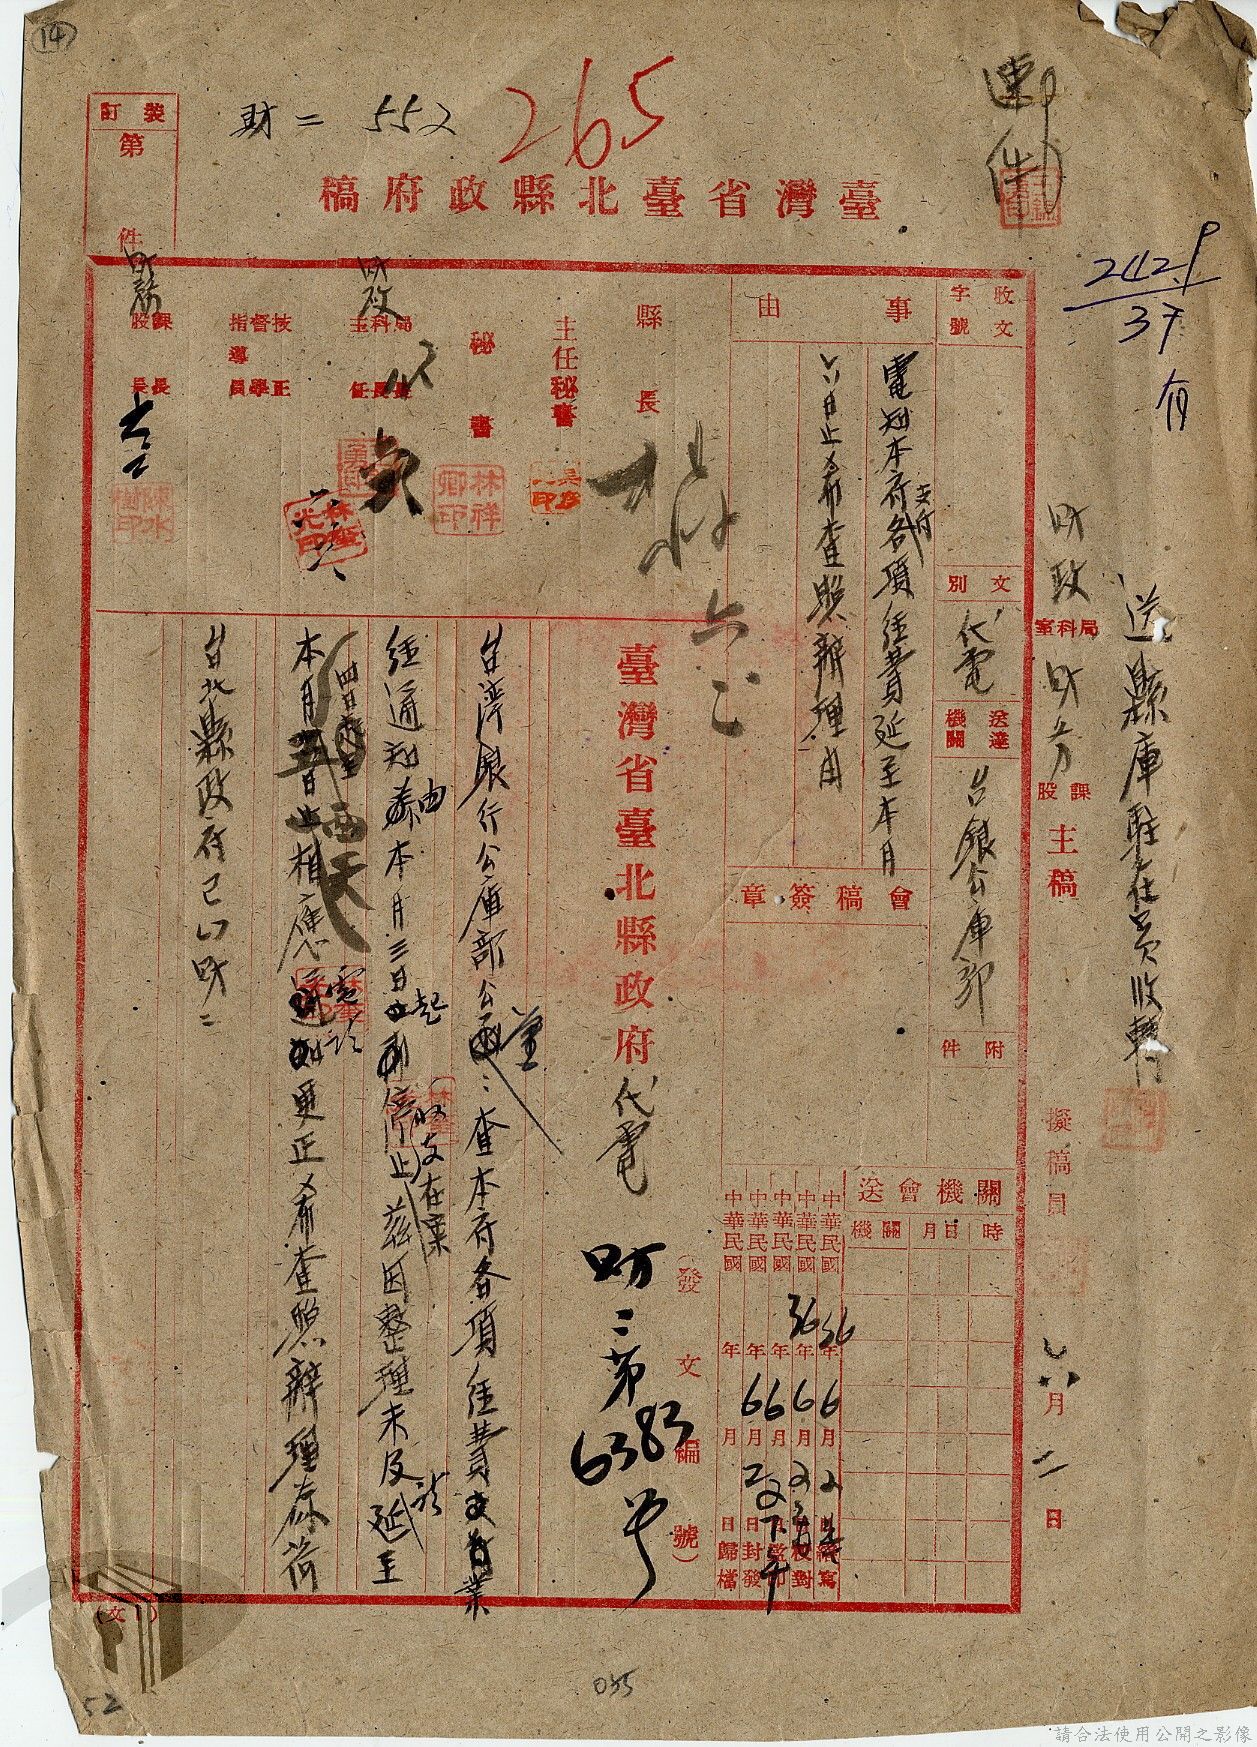 14
財二 552
265
速件
臺灣省臺北縣政府稿
裝訂
第 件
2429
37
送縣庫駐在員收轉
財政 局科室 財務 課股 主稿 擬稿員 六月二日
收文字號
文別 代電
送達機關 台銀公庫部
附件
事由
電知本府各項經費支付延至本月
六日止希查照辦理由
會稿簽章
關機會送
機關 月日 時
中華民國36年6月2日繕寫
中華民國36年6月2日校對
中華民國 年6月2日下午蓋印
中華民國 年6月2日封發
中華民國 年 月 日歸檔
縣長
主任秘書
秘書
財政
局科主任
技正督學指導員
財務
課股長
林祥卿印
陳水樹印
臺灣省臺北縣政府代電
(發文編號)
財二第6383號
台灣銀行公庫部公鑒:查本府各項經費業
經通知由本月三日起停止收支在案茲因整理未及延至
本月四日起至 日止相應電請更正希查照辦理為荷
台北縣政府已 財二
(文一)
52
055
請合法使用公開之影像